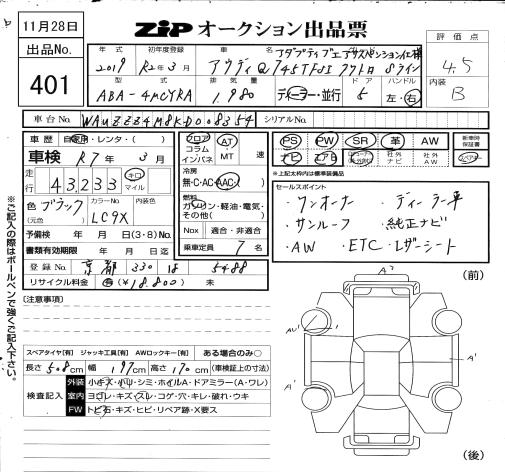 11月28日
ZIP オークション出品票
出品No.
401
年式 初年度登録 車名
2019 R2年3月 アウディQ7 45TFSI クワトロ Sライン
アダプティブエアサスペンション仕様
評価点
4.5
型式 排気量 ドア ハンドル
ABA-4MCYRA 1,980 ディーラー・並行 5 左・右
内装
B
車台No. WAUZZZ4M8KD008354 シリアルNo.
車歴 自家用・レンタ・( )
車検 R7年3月
走行 43,233 キロ マイル
色 ブラック (元色) カラーNo. LC9X 内装色
予備検 年 月 日(3・8)No.
書類有効期限 年 月 日迄
登録No. 京都 330 18 5488
リサイクル料金 済(¥18,800) 未
フロア コラム インパネ
AT MT 速
冷房 無・C・AC・AAC・( )
燃料 ガソリン・軽油・電気・その他( )
Nox 適合・非適合
乗車定員 7名
PS PW SR 革 AW 新車時保証書
ナビ エアB 社外ナビ 社外AW スペアキー
※上記太枠内は標準装備品
セールスポイント
・ワンオーナー ・ディーラー車
・サンルーフ ・純正ナビ
・AW ・ETC ・レザーシート
(注意事項)
(前)
A1
AU1
A1
A1
(後)
スペアタイヤ[有] ジャッキ工具[有] AWロックキー[有] ある場合のみ○
長さ508cm 幅197cm 高さ170cm (車検証上の寸法)
検査記入
外装 小キズ・小凹・シミ・ホイルA・ドアミラー(A・ワレ)
室内 ヨゴレ・キズ・スレ・コゲ・穴・キレ・破れ・ウキ
FW トビ石・キズ・ヒビ・リペア跡・X要ス
※ご記入の際はボールペンで強くご記入下さい。